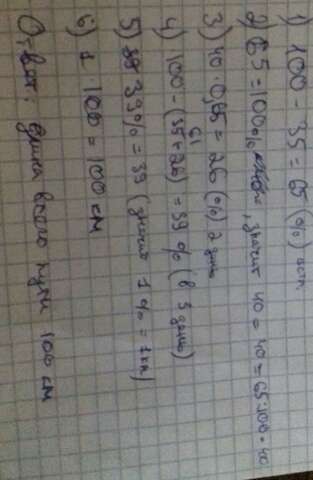 1) 100 - 35 = 65 (%) ост.
2) 65 = 100%, значит 40 = 40 = 65:100·40
3) 40·0,65 = 26 (%) 2 день
4) 100 - (35+26) = 39 % (в 3 день)
61
5) 39% = 39 (значит 1% = 1км)
6) 1·100 = 100 см
Ответ: длина всего пути 100 см